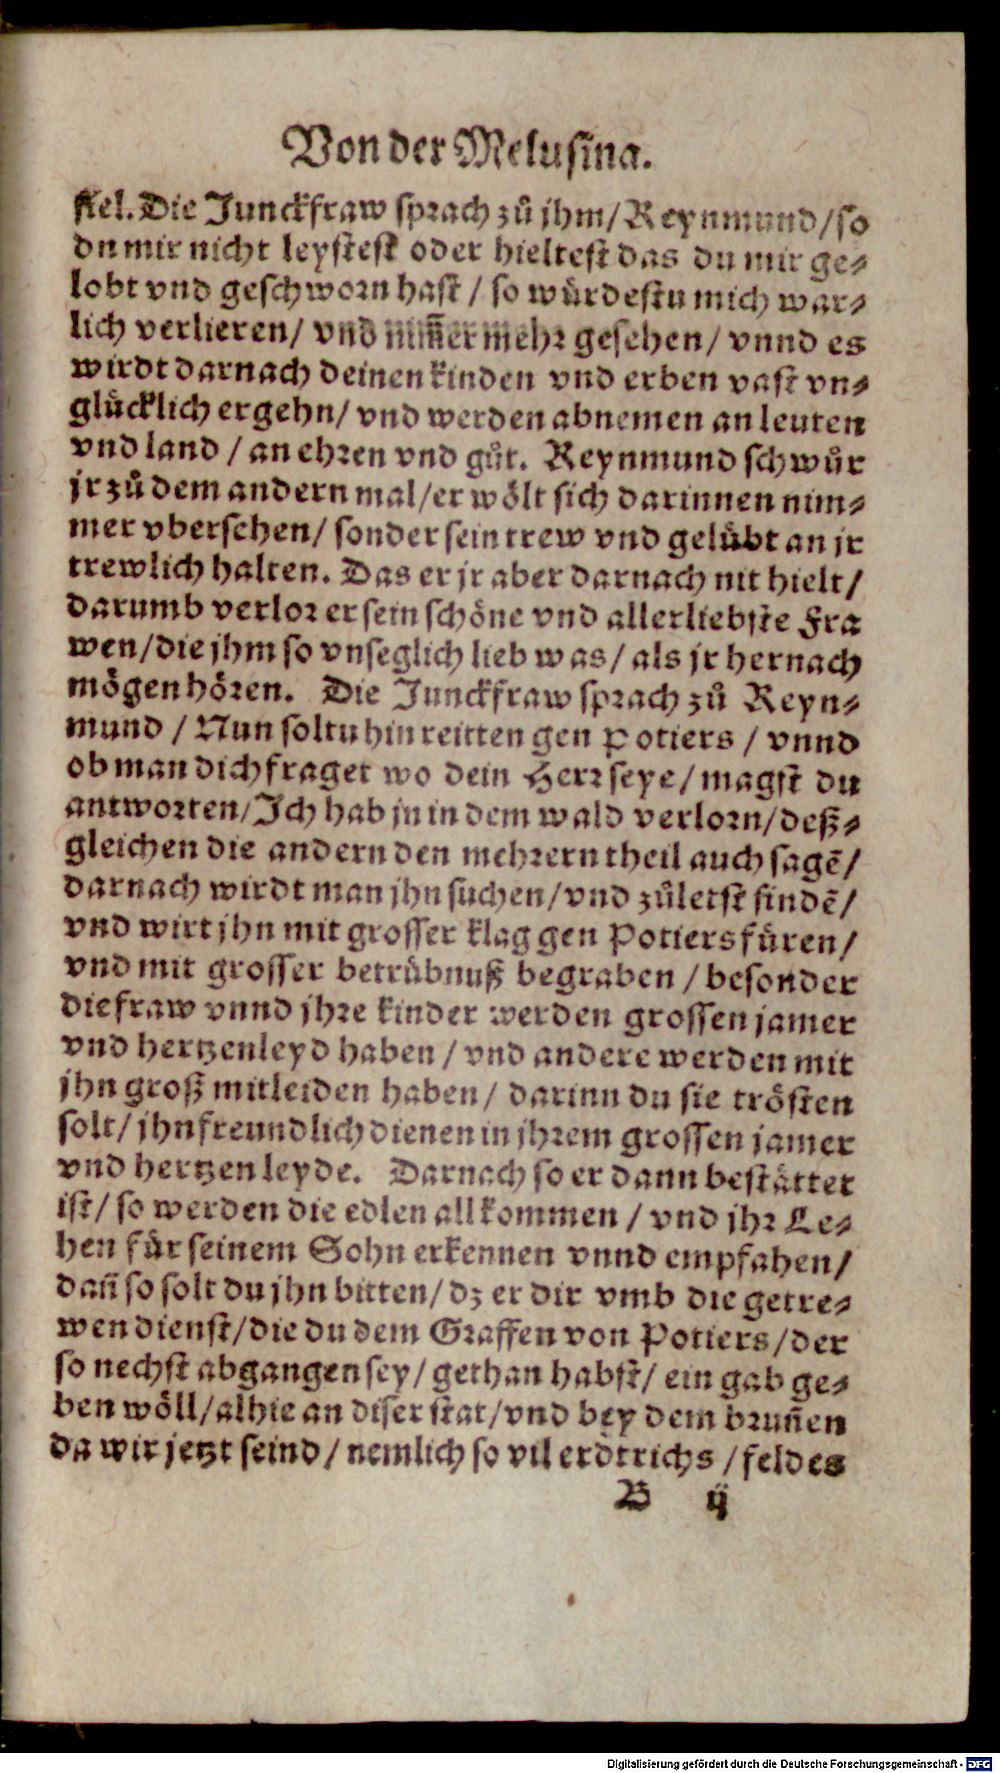 Von der Melusina.
ckel. Die Junckfraw sprach zů jhm/ Reynmund/ so
du mir nicht leystest oder hieltest das du mir ge⸗
lobt vnd geschworn hast / so würdestu mich war⸗
lich verlieren/ vnd nim̄er mehr gesehen/ vnnd es
wirdt darnach deinen kinden vnd erben vast vn⸗
glücklich ergehn/ vnd werden abnemen an leuten
vnd land / an ehren vnd gůt. Reynmund schwůr
jr zů dem andern mal/ er wölt sich darinnen nim⸗
mer vbersehen/ sonder sein trew vnd gelübt an jr
trewlich halten. Das er jr aber darnach nit hielt/
darumb verlor er sein schöne vnd allerliebste Fra
wen/ die jhm so vnseglich lieb was/ als jr hernach
mögen hören. Die Junckfraw sprach zů Reyn⸗
mund / Nun soltu hin reitten gen Potiers / vnnd
ob man dich fraget wo dein Herr seye/ magst du
antworten/ Ich hab jn in dem wald verlorn/ deß⸗
gleichen die andern den mehrern theil auch sagē/
darnach wirdt man jhn suchen/ vnd zůletst findē/
vnd wirt jhn mit grosser klag gen Potiers füren/
vnd mit grosser betrübnuß begraben / besonder
die fraw vnnd jhre kinder werden grossen jamer
vnd hertzenleyd haben / vnd andere werden mit
jhn groß mitleiden haben/ darinn du sie trösten
solt/ jhn freundlich dienen in jhrem grossen jamer
vnd hertzen leyde. Darnach so er dann bestättet
ist/ so werden die edlen all kommen / vnd jhr Le⸗
hen für seinem Sohn erkennen vnnd empfahen/
dañ so solt du jhn bitten/ dz er dir vmb die getre⸗
wen dienst/ die du dem Graffen von Potiers/ der
so nechst abgangen sey/ gethan habst/ ein gab ge⸗
ben wöll/ alhie an diser stat/ vnd bey dem bruñen
da wir jetzt seind / nemlich so vil erdtrichs / feldes
B ij
Digitalisierung gefördert durch die Deutsche Forschungsgemeinschaft - DFG